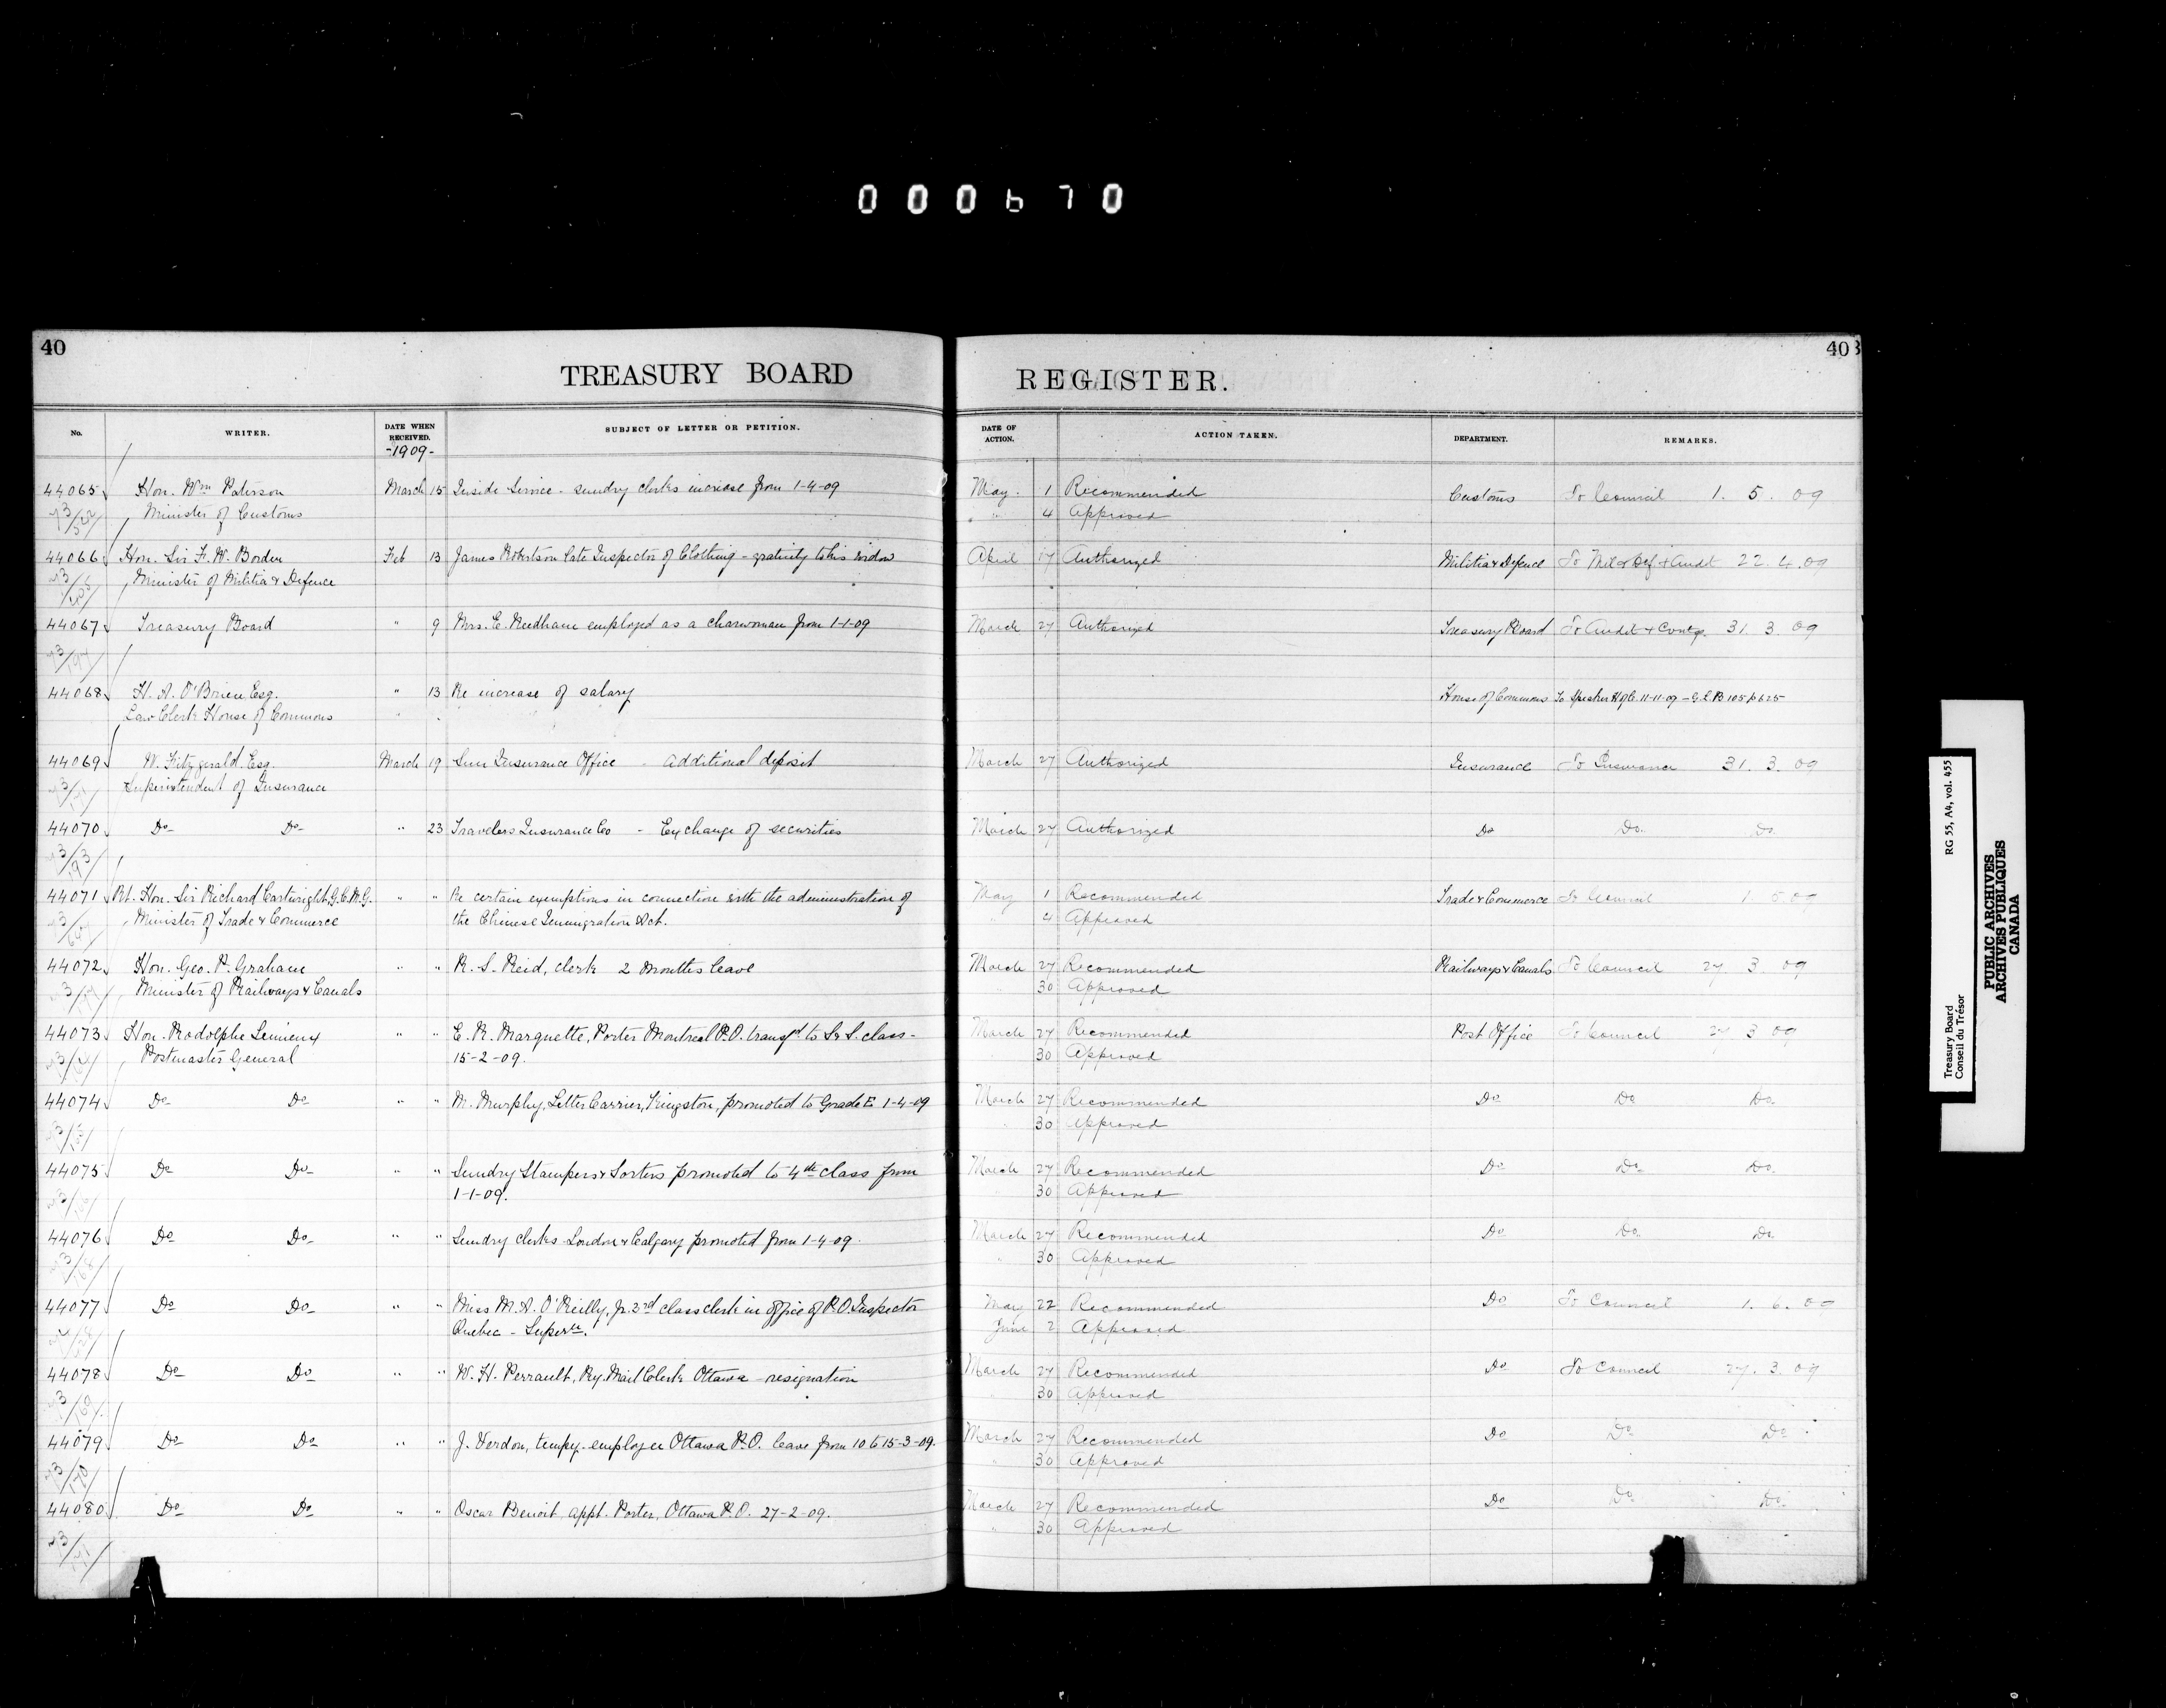 000670
40
TREASURY BOARD
REGISTER.
40
No. WRITER. DATE WHEN RECEIVED. SUBJECT OF LETTER OR PETITION. DATE OF ACTION. ACTION TAKEN. DEPARTMENT. REMARKS.
-1909-
44065 Hon. Wm Paterson March 15 Inside Service - sundry clerks increase from 1-4-09 May. 1 Recommended Customs To Council 1. 5. 09
Minister of Customs " 4 Approved
44066 Hon. Sir F. W. Borden Feb 13 James Robertson late Inspector of Clothing - gratuity to his widow April 17 Authorized Militia & Defence To Mil & Def. & Audit 22.4.09
Minister of Militia & Defence
44067 Treasury Board " 9 Mrs. E. Needham employed as a charwoman from 1-1-09 March 27 Authorized Treasury Board To Audit & Contg. 31. 3. 09
44068 H. A. O'Brien, Esq. " 13 Re increase of salary House of Commons To Speaker H of C. 11-11-09 - G.L.B 105 p 625
Law Clerk House of Commons "
44069 W. Fitzgerald. Esq. March 19 Sun Insurance Office - Additional deposit March 27 Authorized Insurance To Insurance 31. 3. 09
Superintendent of Insurance
44070 Do Do " 23 Travelers Insurance Co - Exchange of securities March 27 Authorized Do Do. Do.
44071 Rt. Hon. Sir Richard Cartwright, G.C.M.G. " " Re certain exemptions in connection with the administration of May 1 Recommended Trade & Commerce To Council 1. 5. 09
Minister of Trade & Commerce the Chinese Immigration Act. " 4 Approved
44072 Hon. Geo. P. Graham " " R. S. Reid, clerk 2 months leave March 27 Recommended Railways & Canals To Council 27 3 09
Minister of Railways & Canals " 30 Approved
44073 Hon. Rodolphe Lemieux " " E. R. Marquette, Porter Montreal P.O. transfd to S. & S. class - March 27 Recommended Post Office To Council 27 3 09
Postmaster General 15-2-09. 30 Approved
44074 Do Do " " M. Murphy, Letter Carrier, Kingston, promoted to Grade E 1-4-09 March 27 Recommended Do Do Do.
" 30 Approved
44075 Do Do " " Sundry Stampers & Sorters promoted to 4th class from March 27 Recommended Do Do. Do.
1-1-09. " 30 Approved
44076 Do Do " " Sundry clerks London & Calgary promoted from 1-4-09. March 27 Recommended Do Do. Do.
" 30 Approved
44077 Do Do " " Miss M. A. O'Reilly, Jr. 2nd class clerk in office of P.O. Inspector May 22 Recommended Do To Council 1. 6. 09
Quebec - Supern. June 2 Approved
44078 Do Do " " W. H. Perrault, Ry. Mail Clerk Ottawa - resignation March 27 Recommended Do To Council 27. 3. 09
" 30 Approved
44079 Do Do " " J. Verdon, tempy. employee Ottawa P.O. leave from 10 to 15-3-09. March 27 Recommended Do Do Do
" 30 Approved
44080 Do Do " " Oscar Benoit, appt. Porter, Ottawa P.O. 27-2-09. March 27 Recommended Do Do. Do.
" 30 Approved
Treasury Board RG 55, A4, vol. 455
Conseil du Trésor
PUBLIC ARCHIVES
ARCHIVES PUBLIQUES
CANADA